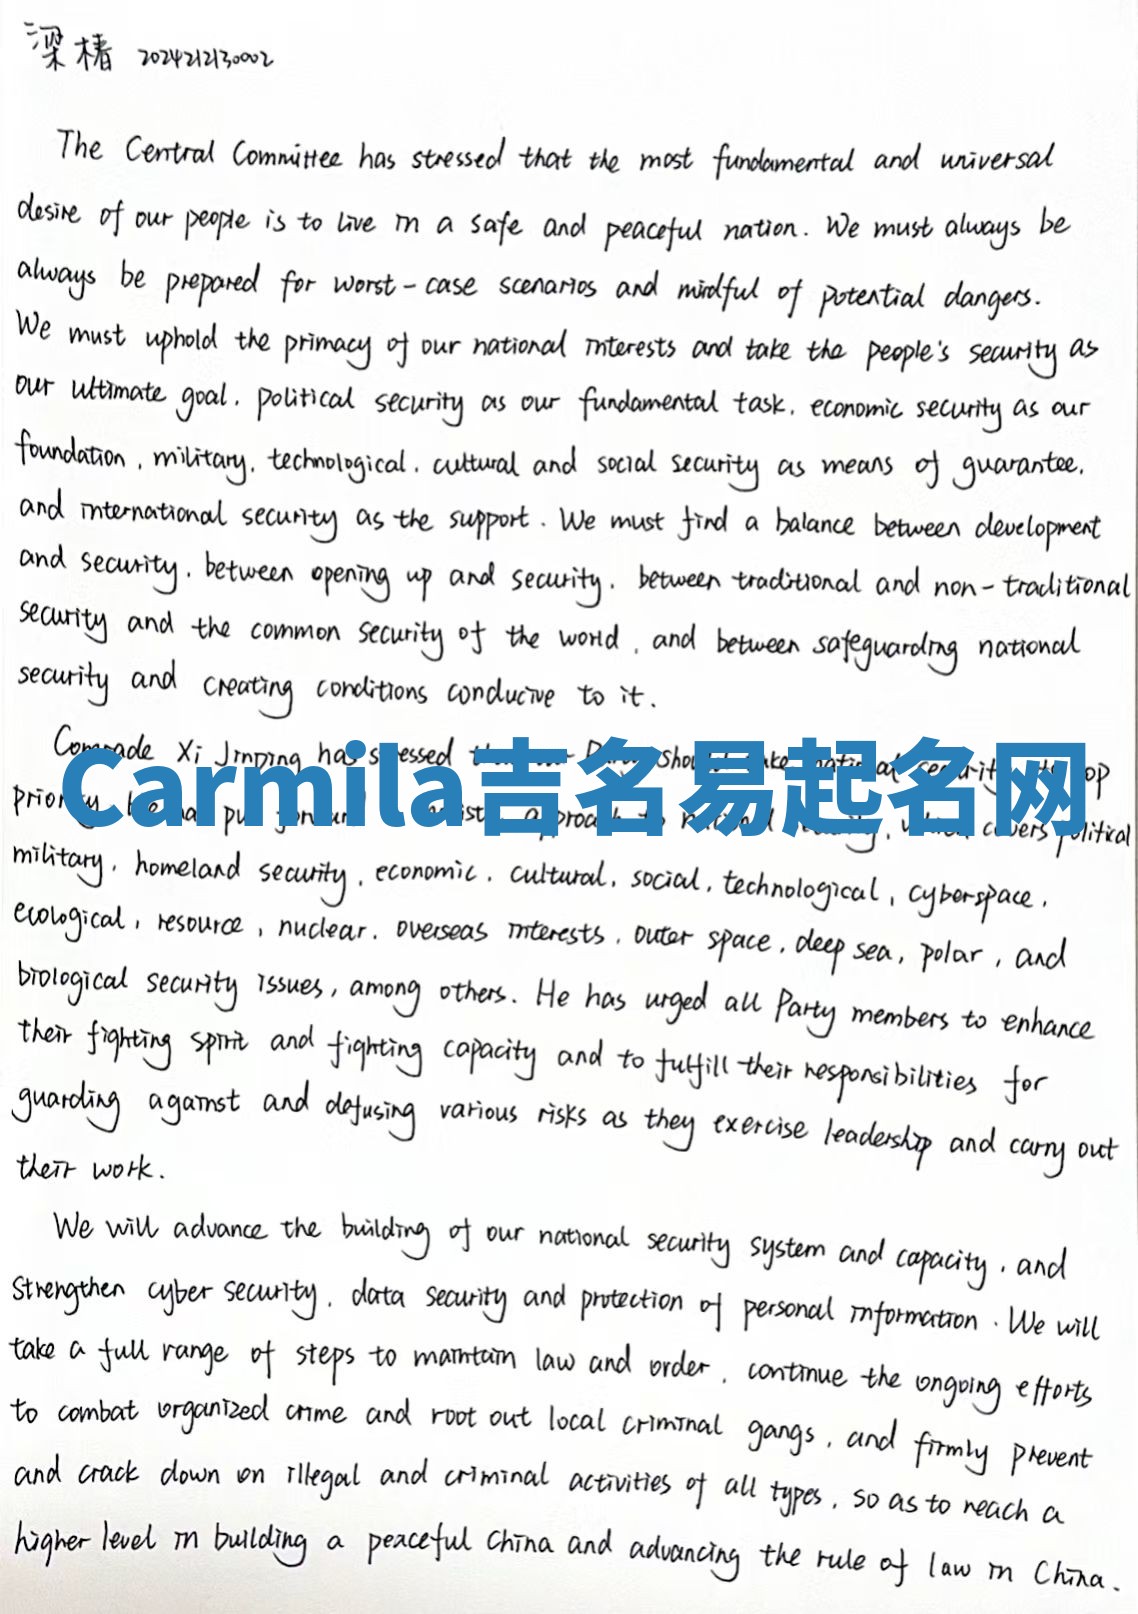 梁椿 2024212130002
The Central Committee has stressed that the most fundamental and universal
desire of our people is to live in a safe and peaceful nation. We must always be
always be prepared for worst-case scenarios and mindful of potential dangers.
We must uphold the primacy of our national interests and take the people's security as
our ultimate goal, political security as our fundamental task, economic security as our
foundation, military, technological, cultural and social security as means of guarantee,
and international security as the support. We must find a balance between development
and security, between opening up and security, between traditional and non-traditional
security and the common security of the world, and between safeguarding national
security and creating conditions conducive to it.
Comrade Xi Jinping has stressed should national security top
Carmila吉名易起名网
priority, approach to national covers political
military, homeland security, economic, cultural, social, technological, cyberspace,
ecological, resource, nuclear, overseas interests, outer space, deep sea, polar, and
biological security issues, among others. He has urged all Party members to enhance
their fighting spirit and fighting capacity and to fulfill their responsibilities for
guarding against and defusing various risks as they exercise leadership and carry out
their work.
We will advance the building of our national security system and capacity, and
strengthen cyber security, data security and protection of personal information. We will
take a full range of steps to maintain law and order, continue the ongoing efforts
to combat organized crime and root out local criminal gangs, and firmly prevent
and crack down on illegal and criminal activities of all types, so as to reach a
higher level in building a peaceful China and advancing the rule of law in China.